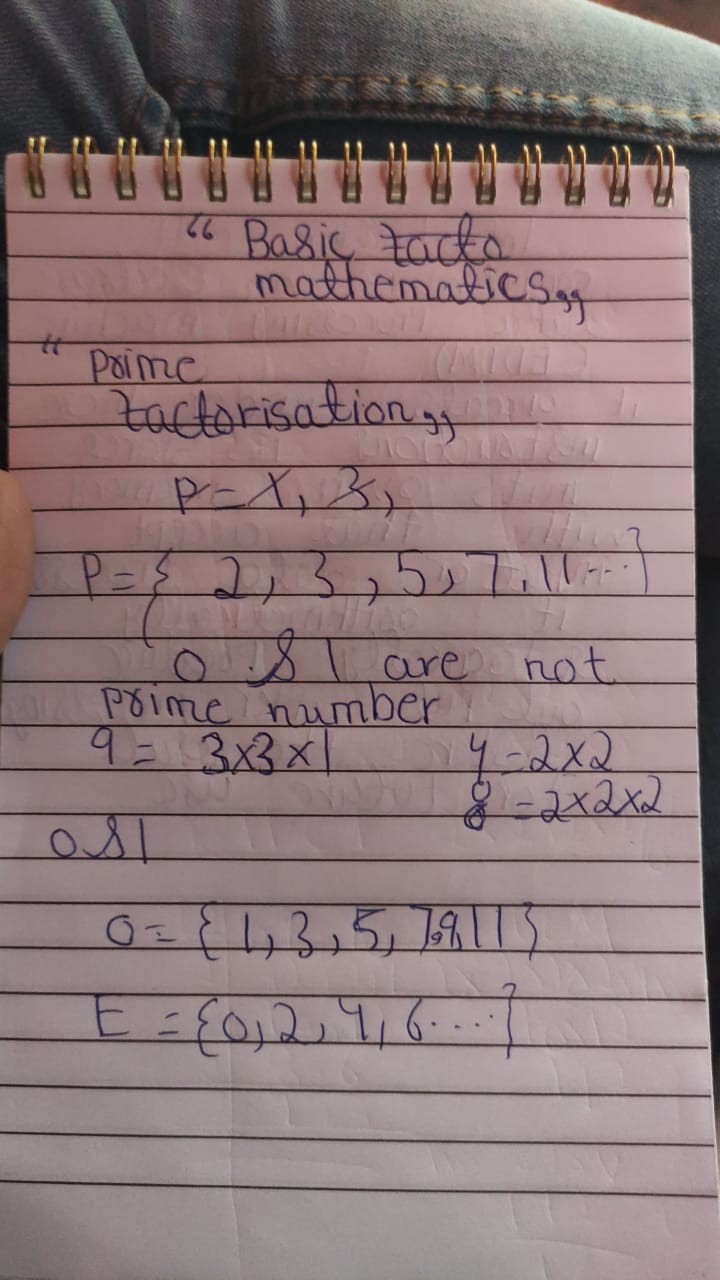 “ Basic facto
mathematics ,,
“ prime
factorisation ,,
P = 1, 3,
P = { 2, 3, 5, 7, 11 ... }
0 & 1 are not
prime number
9 = 3x3x1 4 = 2x2
8 = 2x2x2
0 & 1
O = { 1, 3, 5, 7, 9, 11 }
E = { 0, 2, 4, 6 .... }